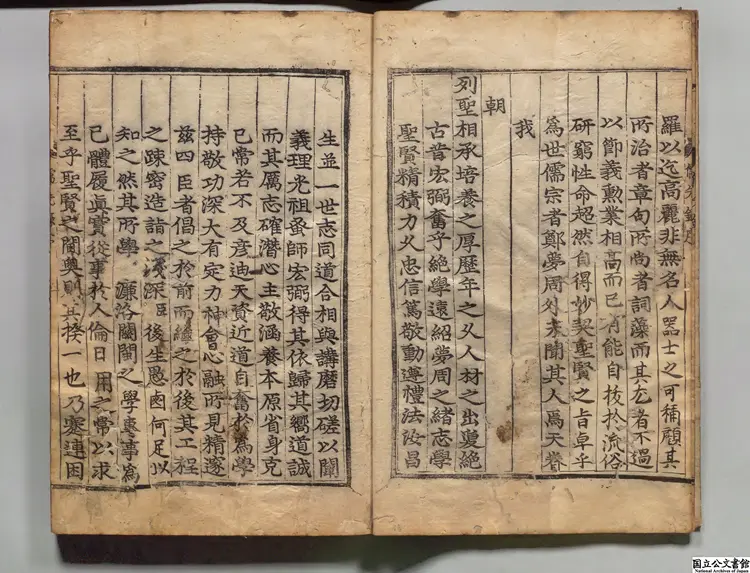 羅以迄高麗非無名人噐士之可稱顧其
所治者章句所尚者詞藻而其尤者不過
以節義勲業相高而已有能自拔於流俗
研窮性命超然自得妙契聖賢之旨卓乎
爲世儒宗者鄭夢周外未聞其人焉天眷
我
朝
列聖相承培養之厚歷年之久人材之出夐絶
古昔宏弼奮乎絶學遠紹夢周之緒志學
聖賢精積力久忠信篤敬動遵禮法汝昌
生並一世志同道合相與講磨切磋以闡
義理光祖蚤師宏弼得其依歸其嚮道誠
而其厲志確潛心主敬涵養本原省身克
已常若不及彦迪天資近道自奮於爲學
持敬功深大有定力神會心融所見精邃
玆四臣者倡之於前而繼之於後其工程
之踈密造詣之淺深臣後生愚鹵何足以
知之然其所學濂洛關閩之學專事爲
已體履眞實從事於人倫日用之常以求
至乎聖賢之閫奥則其揆一也乃蹇連困
国立公文書館
National Archives of Japan